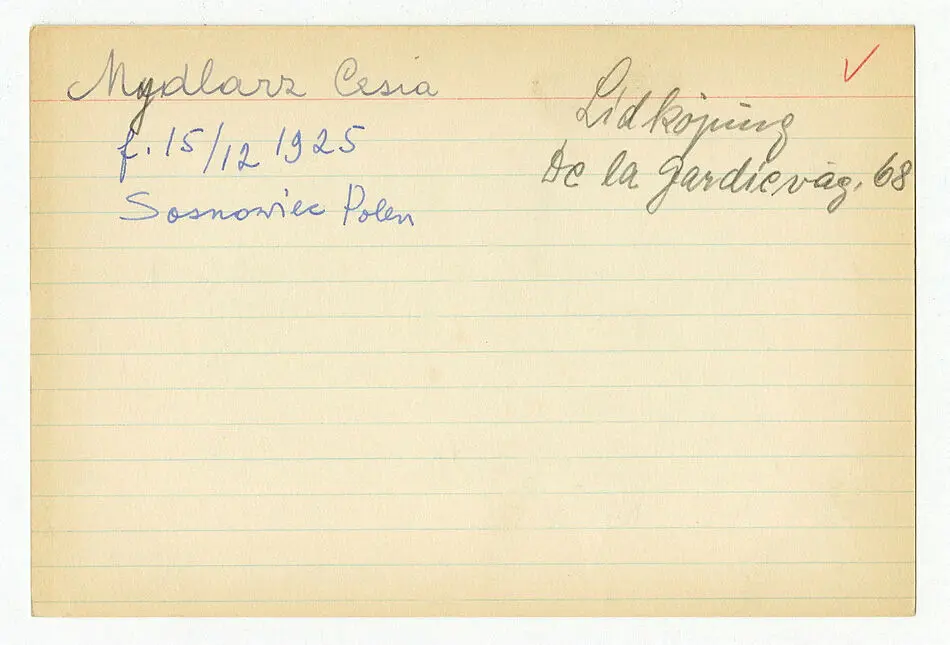 Mydlarz Cesia
f. 15/12 1925
Sosnowiec Polen
Lidköping
De la Gardieväg. 68